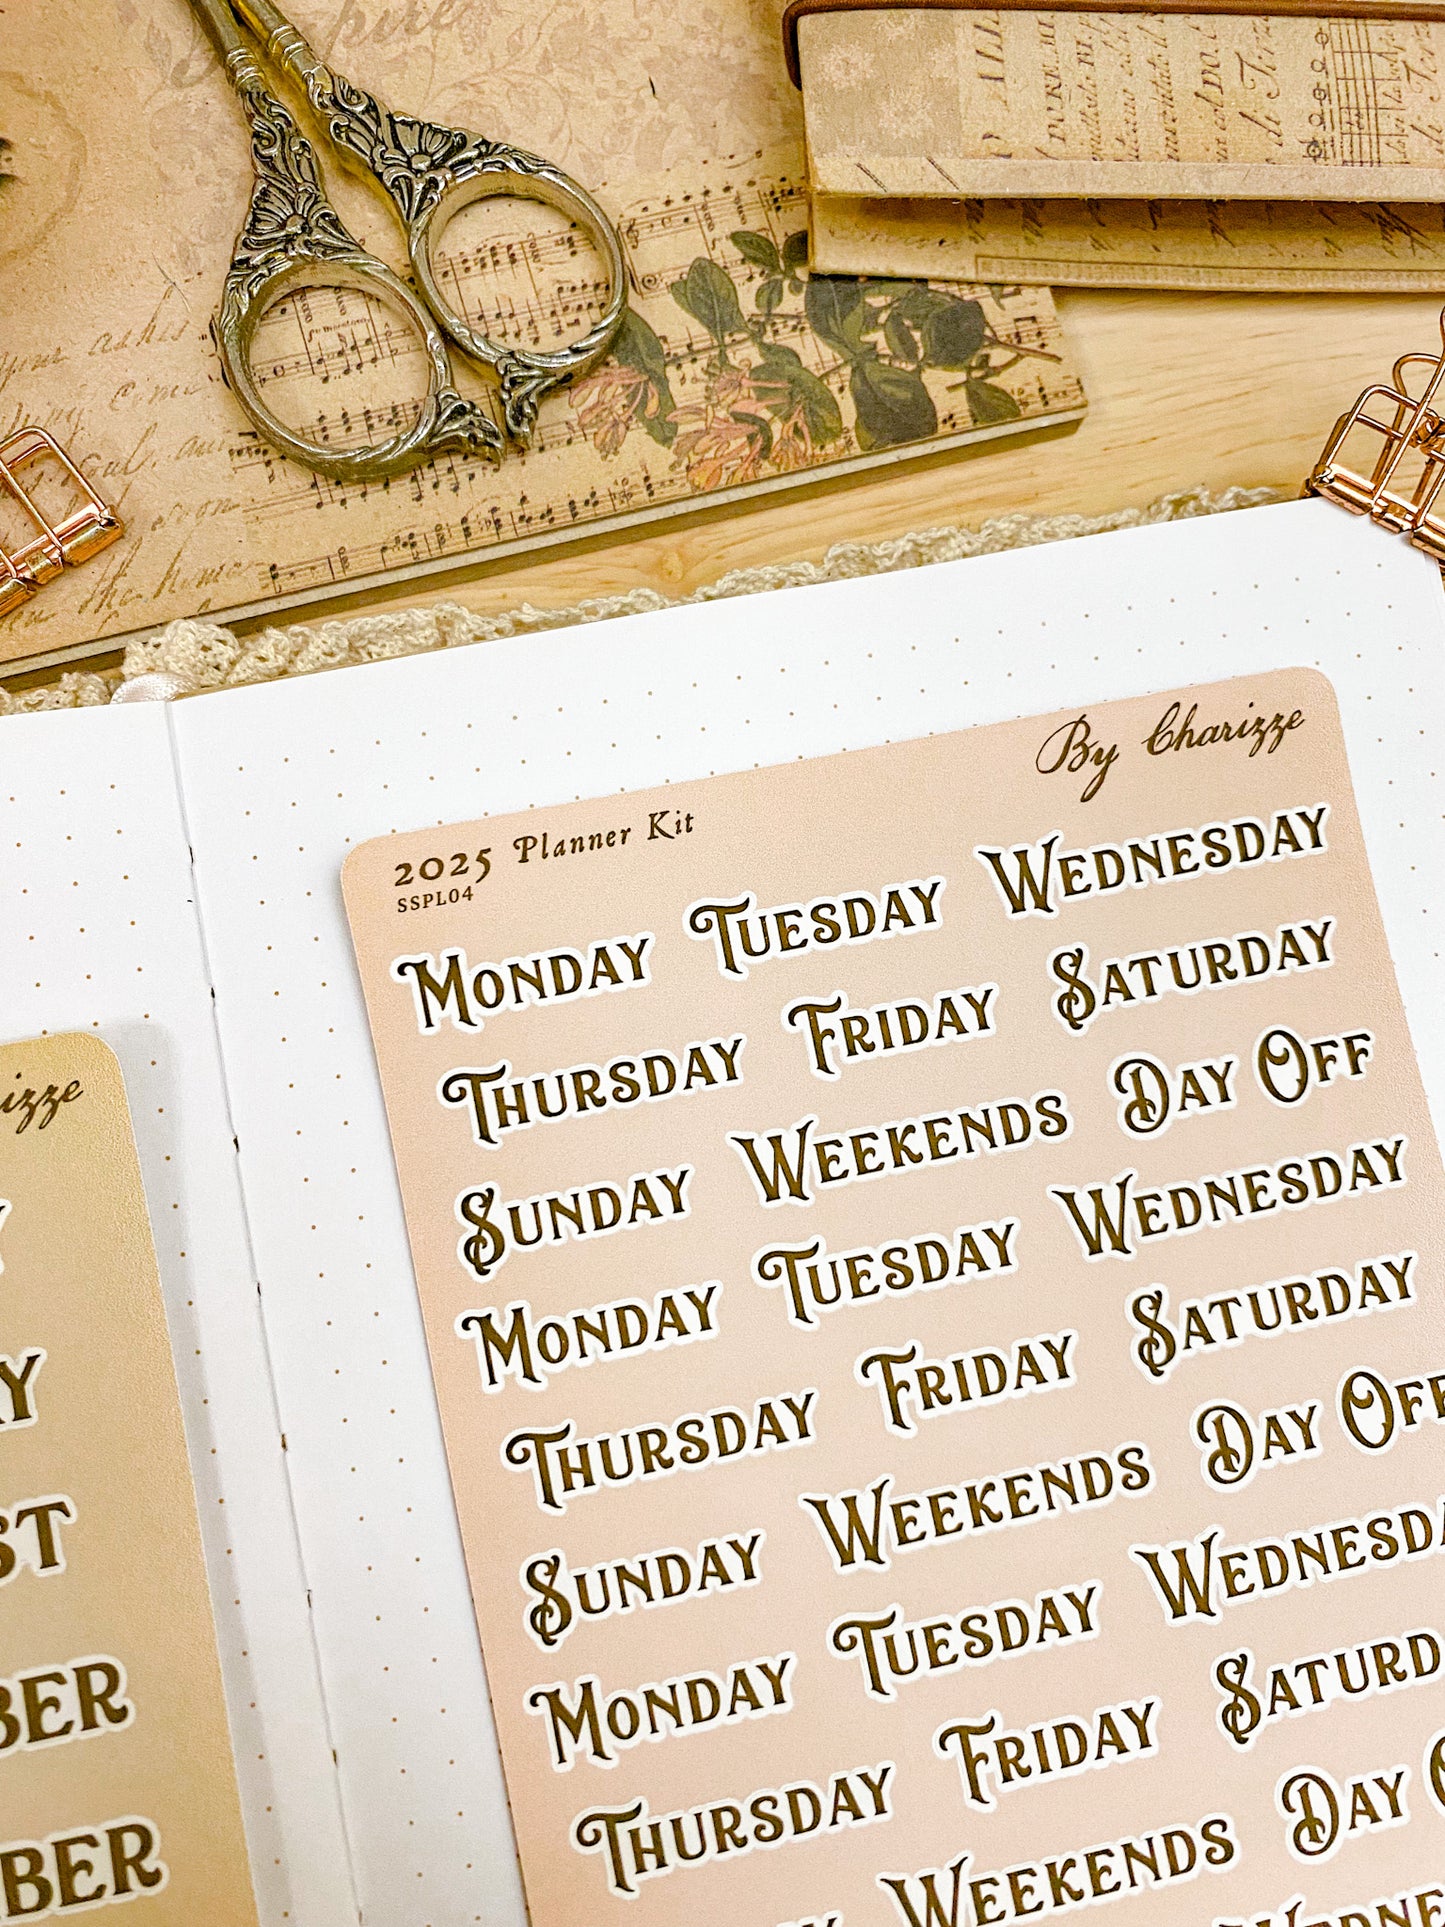 By Charizze
2025 Planner Kit
SSPL04
Monday Tuesday Wednesday
Thursday Friday Saturday
Sunday Weekends Day Off
Monday Tuesday Wednesday
Thursday Friday Saturday
Sunday Weekends Day Off
Monday Tuesday Wednesda
Thursday Friday Saturd
Weekends Day O
izze
Y
AY
ST
BER
BER
your ashes
the home